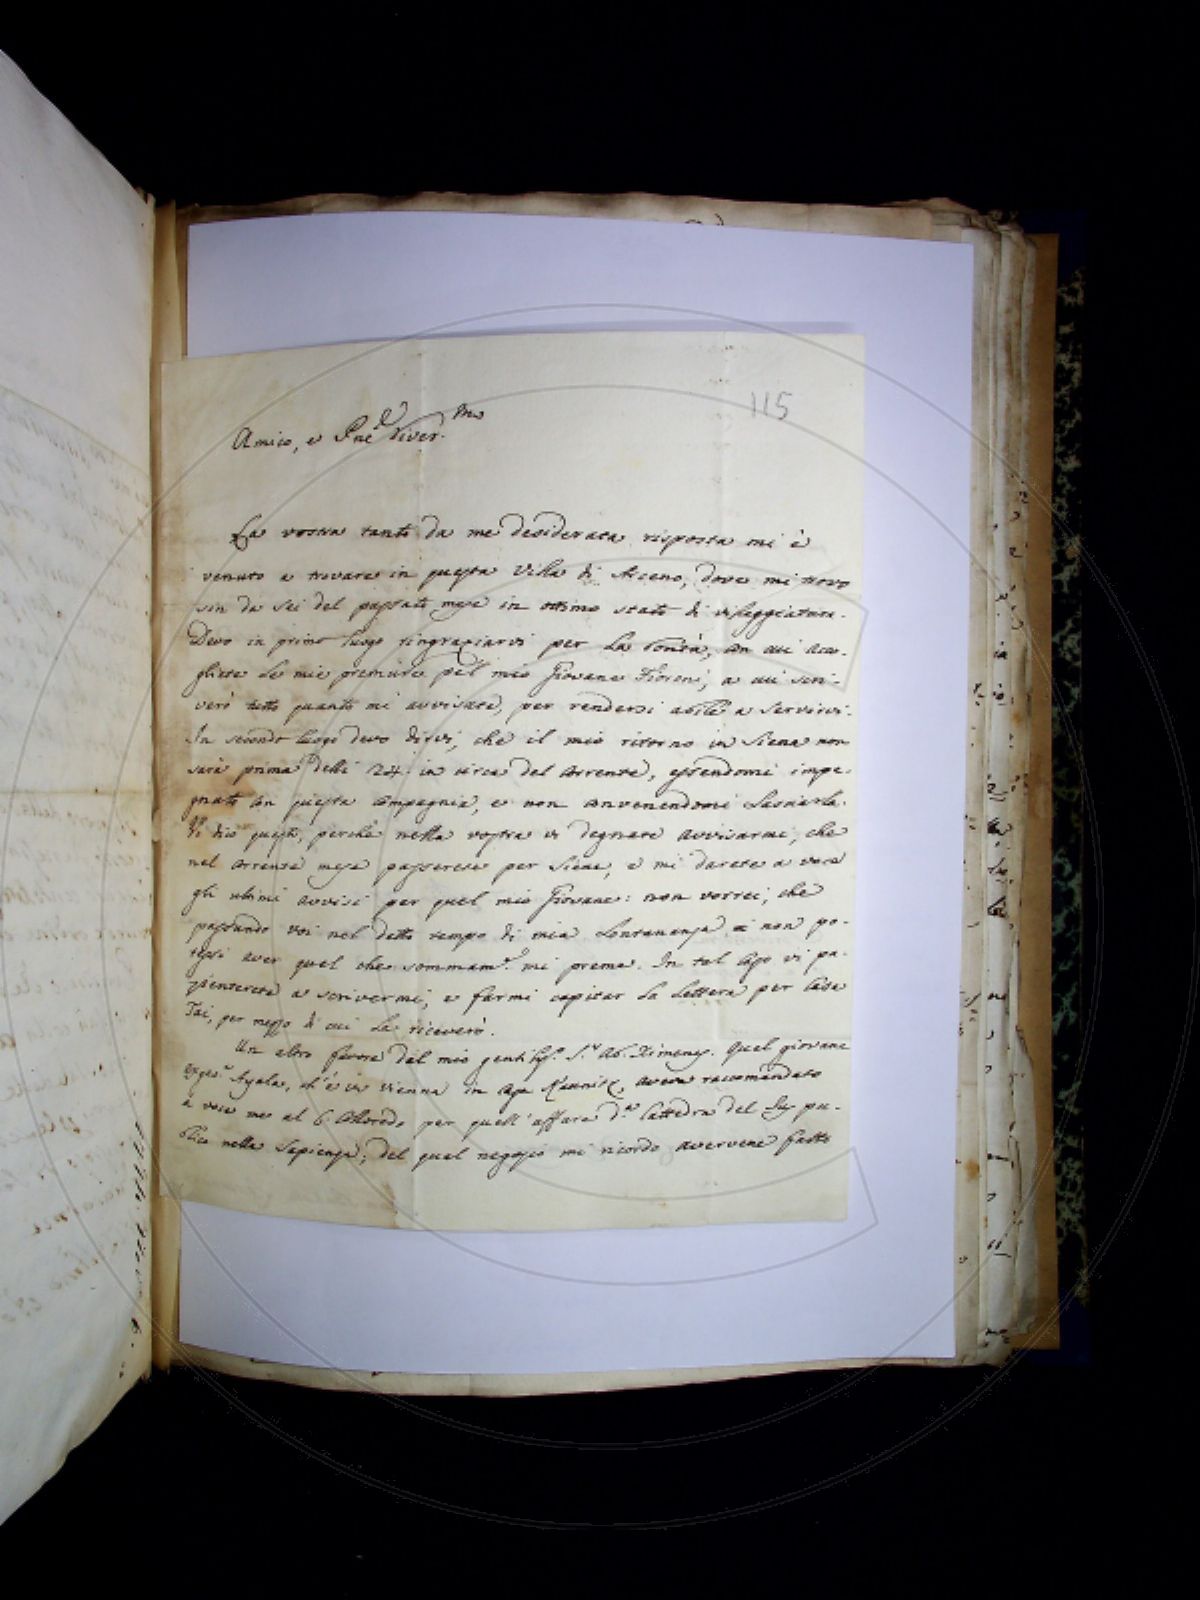 115
Amico, e Pne River.mo
La vostra tanto da me desiderata risposta mi è
venuto a trovare in questa Villa di Arceno, dove mi trovo
sin da sei del passato mese in ottimo stato di villeggiatura.
Devo in primo luogo ringraziarvi per la bontà, con cui acco-
gliete le mie premure pel mio Giovane Fioreni, a cui scri-
verò tutto quanto mi avvisate, per rendersi abile a servirvi.
In secondo luogo devo dirvi, che il mio ritorno in Siena non
sarà prima delli 24. in circa del corrente, essendomi impe-
gnato con questa compagnia, e non convenendomi lasciarla.
Vi dico questo, perchè nella vostra vi degnate avvisarmi, che
nel corrente mese passerete per Siena, e mi darete a voce
gli ultimi avvisi per quel mio Giovane: non vorrei, che
passando voi nel detto tempo di mia lontananza, io non po-
tessi aver quel che sommam.e mi preme. In tal caso vi pa-
zienterete a scrivermi, e farmi capitar la lettera per Casa
Tai, per mezzo di cui la riceverò.
Un altro favore dal mio gentiliss.o S.r Ab. Ximenes. Quel giovane
Exges.a Ayala, ch'è in Vienna in casa Kaunitz, aveva racomandato
a voce me al C. Alberedo per quell'affare d.a Cattedra del Jus pu-
blico nella Sapienza, del qual negozio mi ricordo avervene fatto